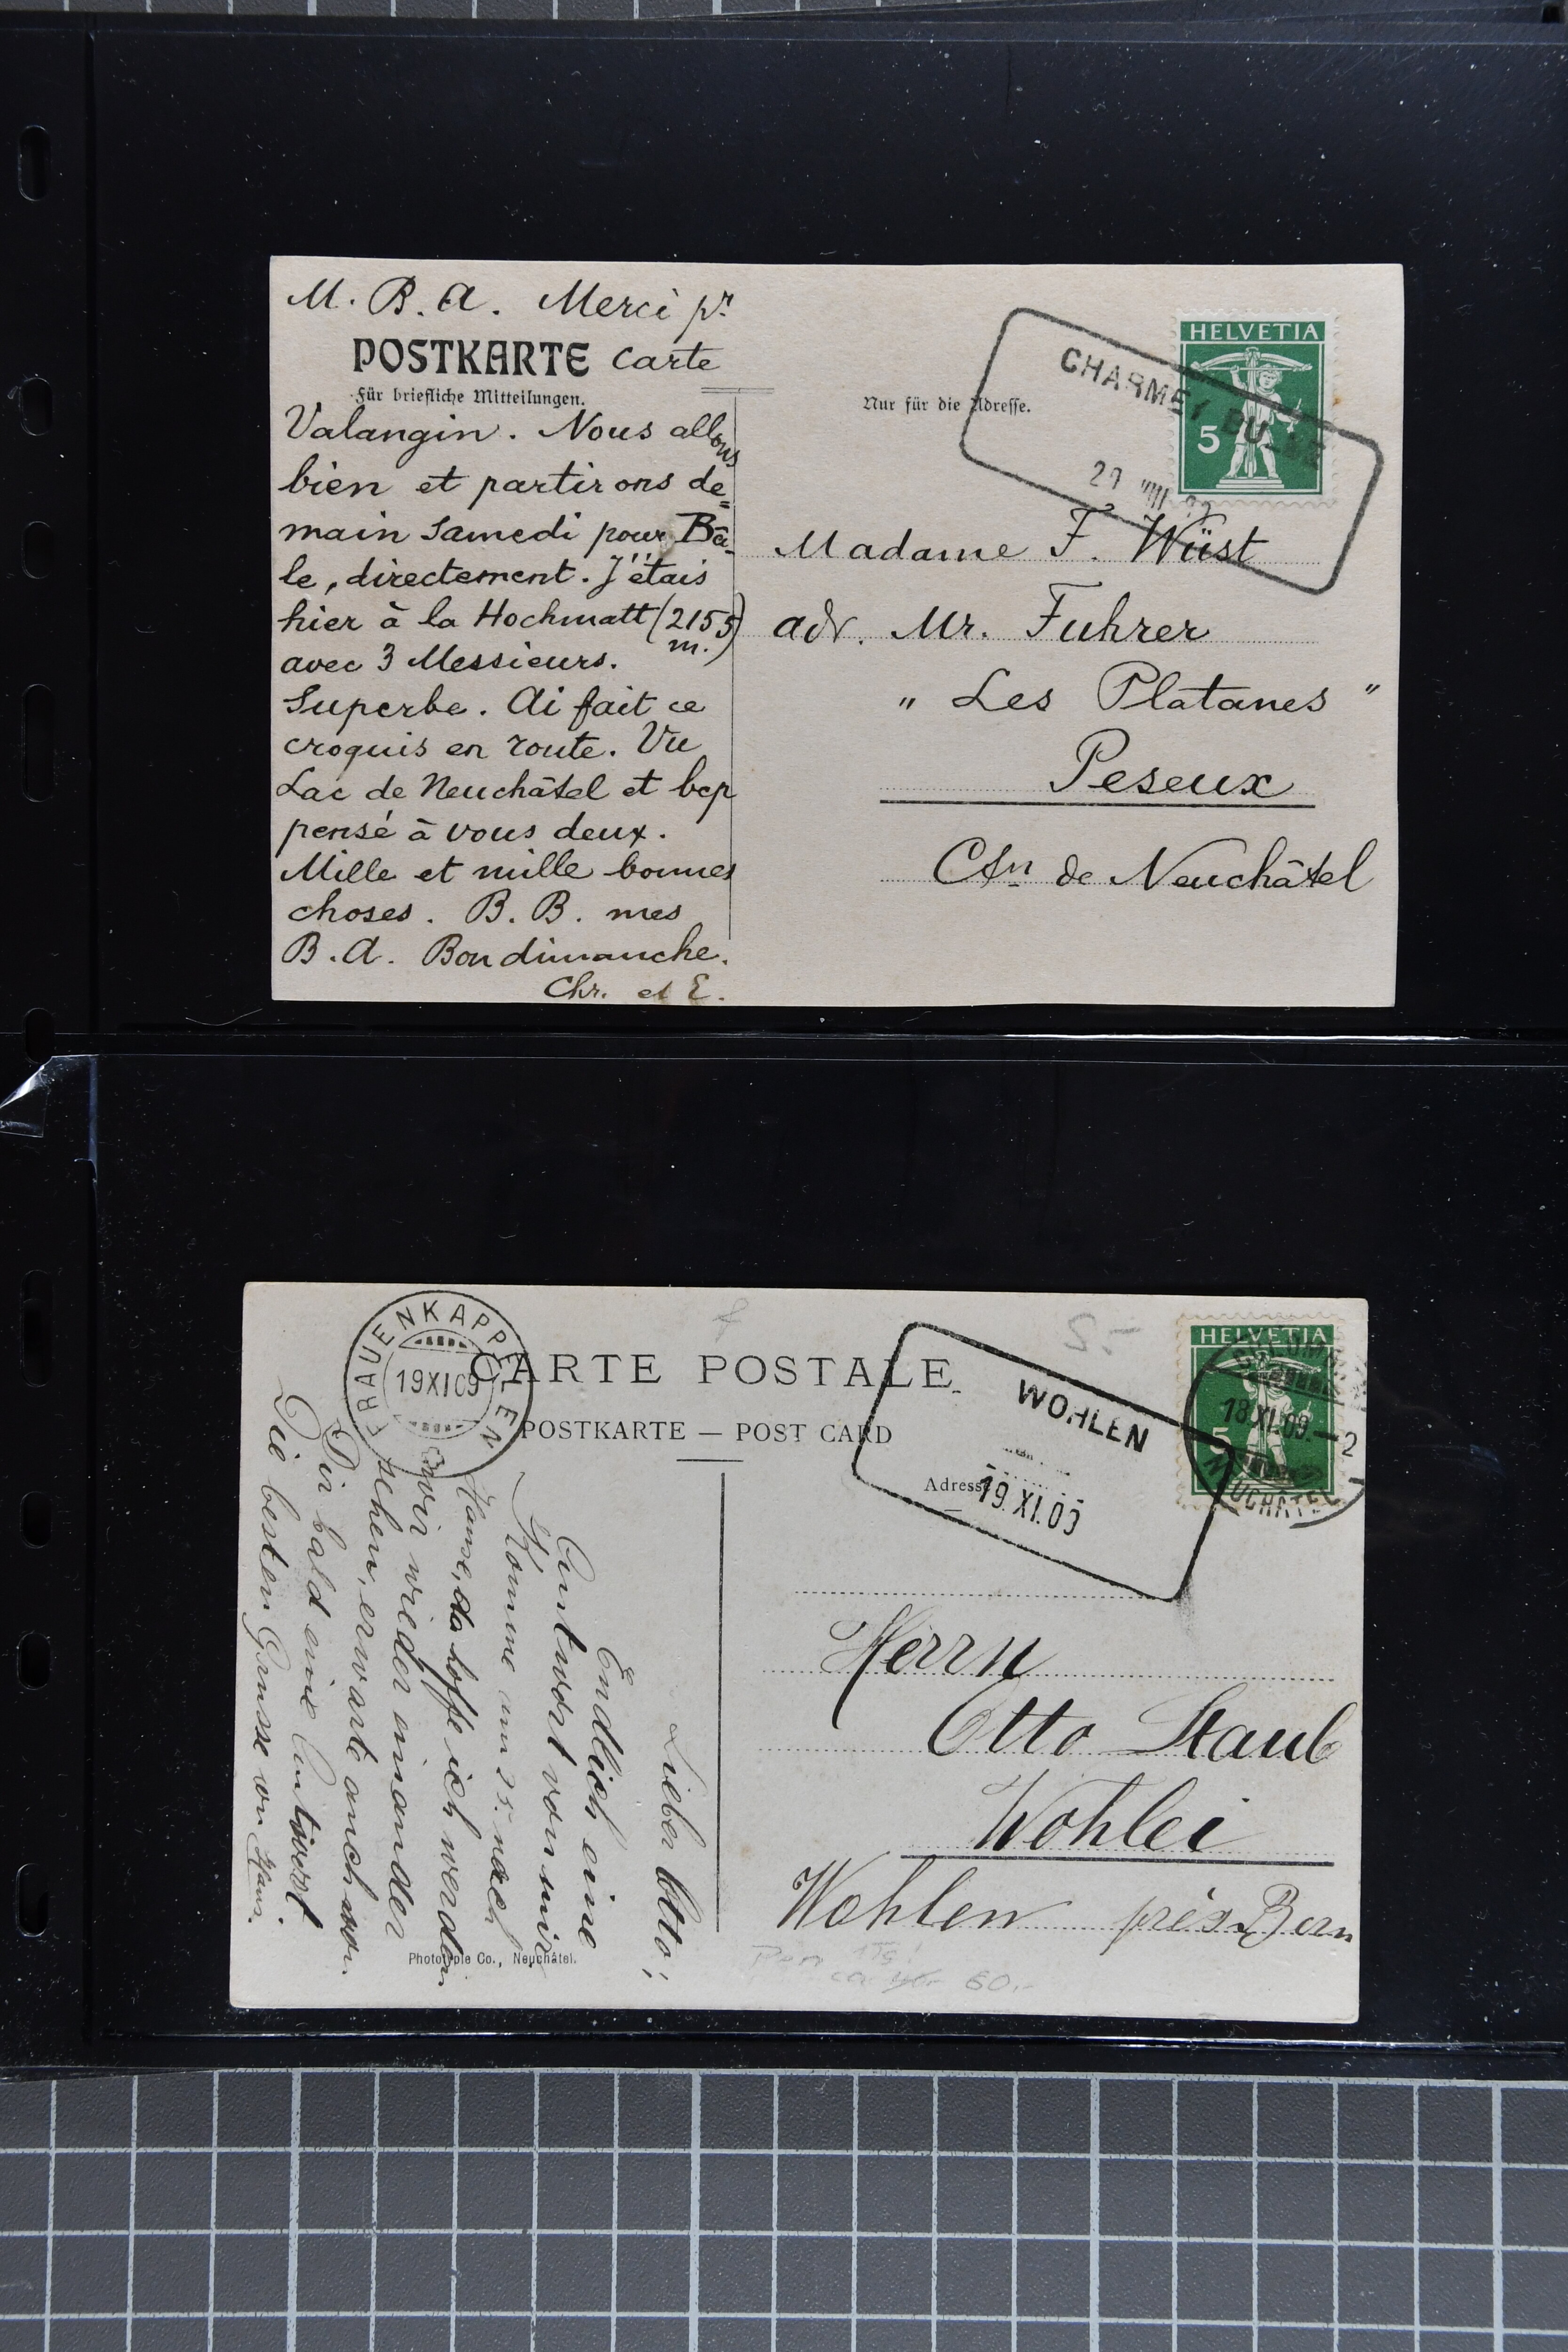 M. B. A. Merci pr
POSTKARTE carte
Für briefliche Mitteilungen.
Valangin. Nous allons
bien et partirons de=
main samedi pour Bâ-
le, directement. J'étais
hier à la Hochmatt (2155 m.)
avec 3 Messieurs.
Superbe. Ai fait ce
croquis en route. Vu
Lac de Neuchâtel et bcp
pensé à vous deux.
Mille et mille bonnes
choses. B. B. mes
B. A. Bon dimanche.
Chr. et E.
Nur für die Adresse.
HELVETIA
5
CHARMEY
29 VIII
Madame F. Wüst
adr. Mr. Fuhrer
"Les Platanes"
Peseux
Ctn de Neuchâtel
FRAUENKAPPELEN
19 XI 09
CARTE POSTALE
POSTKARTE — POST CARD
Adresse
WOHLEN
19. XI. 09
HELVETIA
5
COLOMBIER
18 XI. 09. — 2
NEUCHÂTEL
5.-
Herrn
Otto Staub
Wohlei
Wohlen près Bern
60.-
Lieber Otto;
Endlich eine
Antwort von mir
Komme am 25. nach
Hause, da hoffe ich werden
wir wieder einander
sehen, erwarte auch von
Dir bald eine Antwort
Die besten Grüsse von Hans.
Phototypie Co., Neuchâtel.